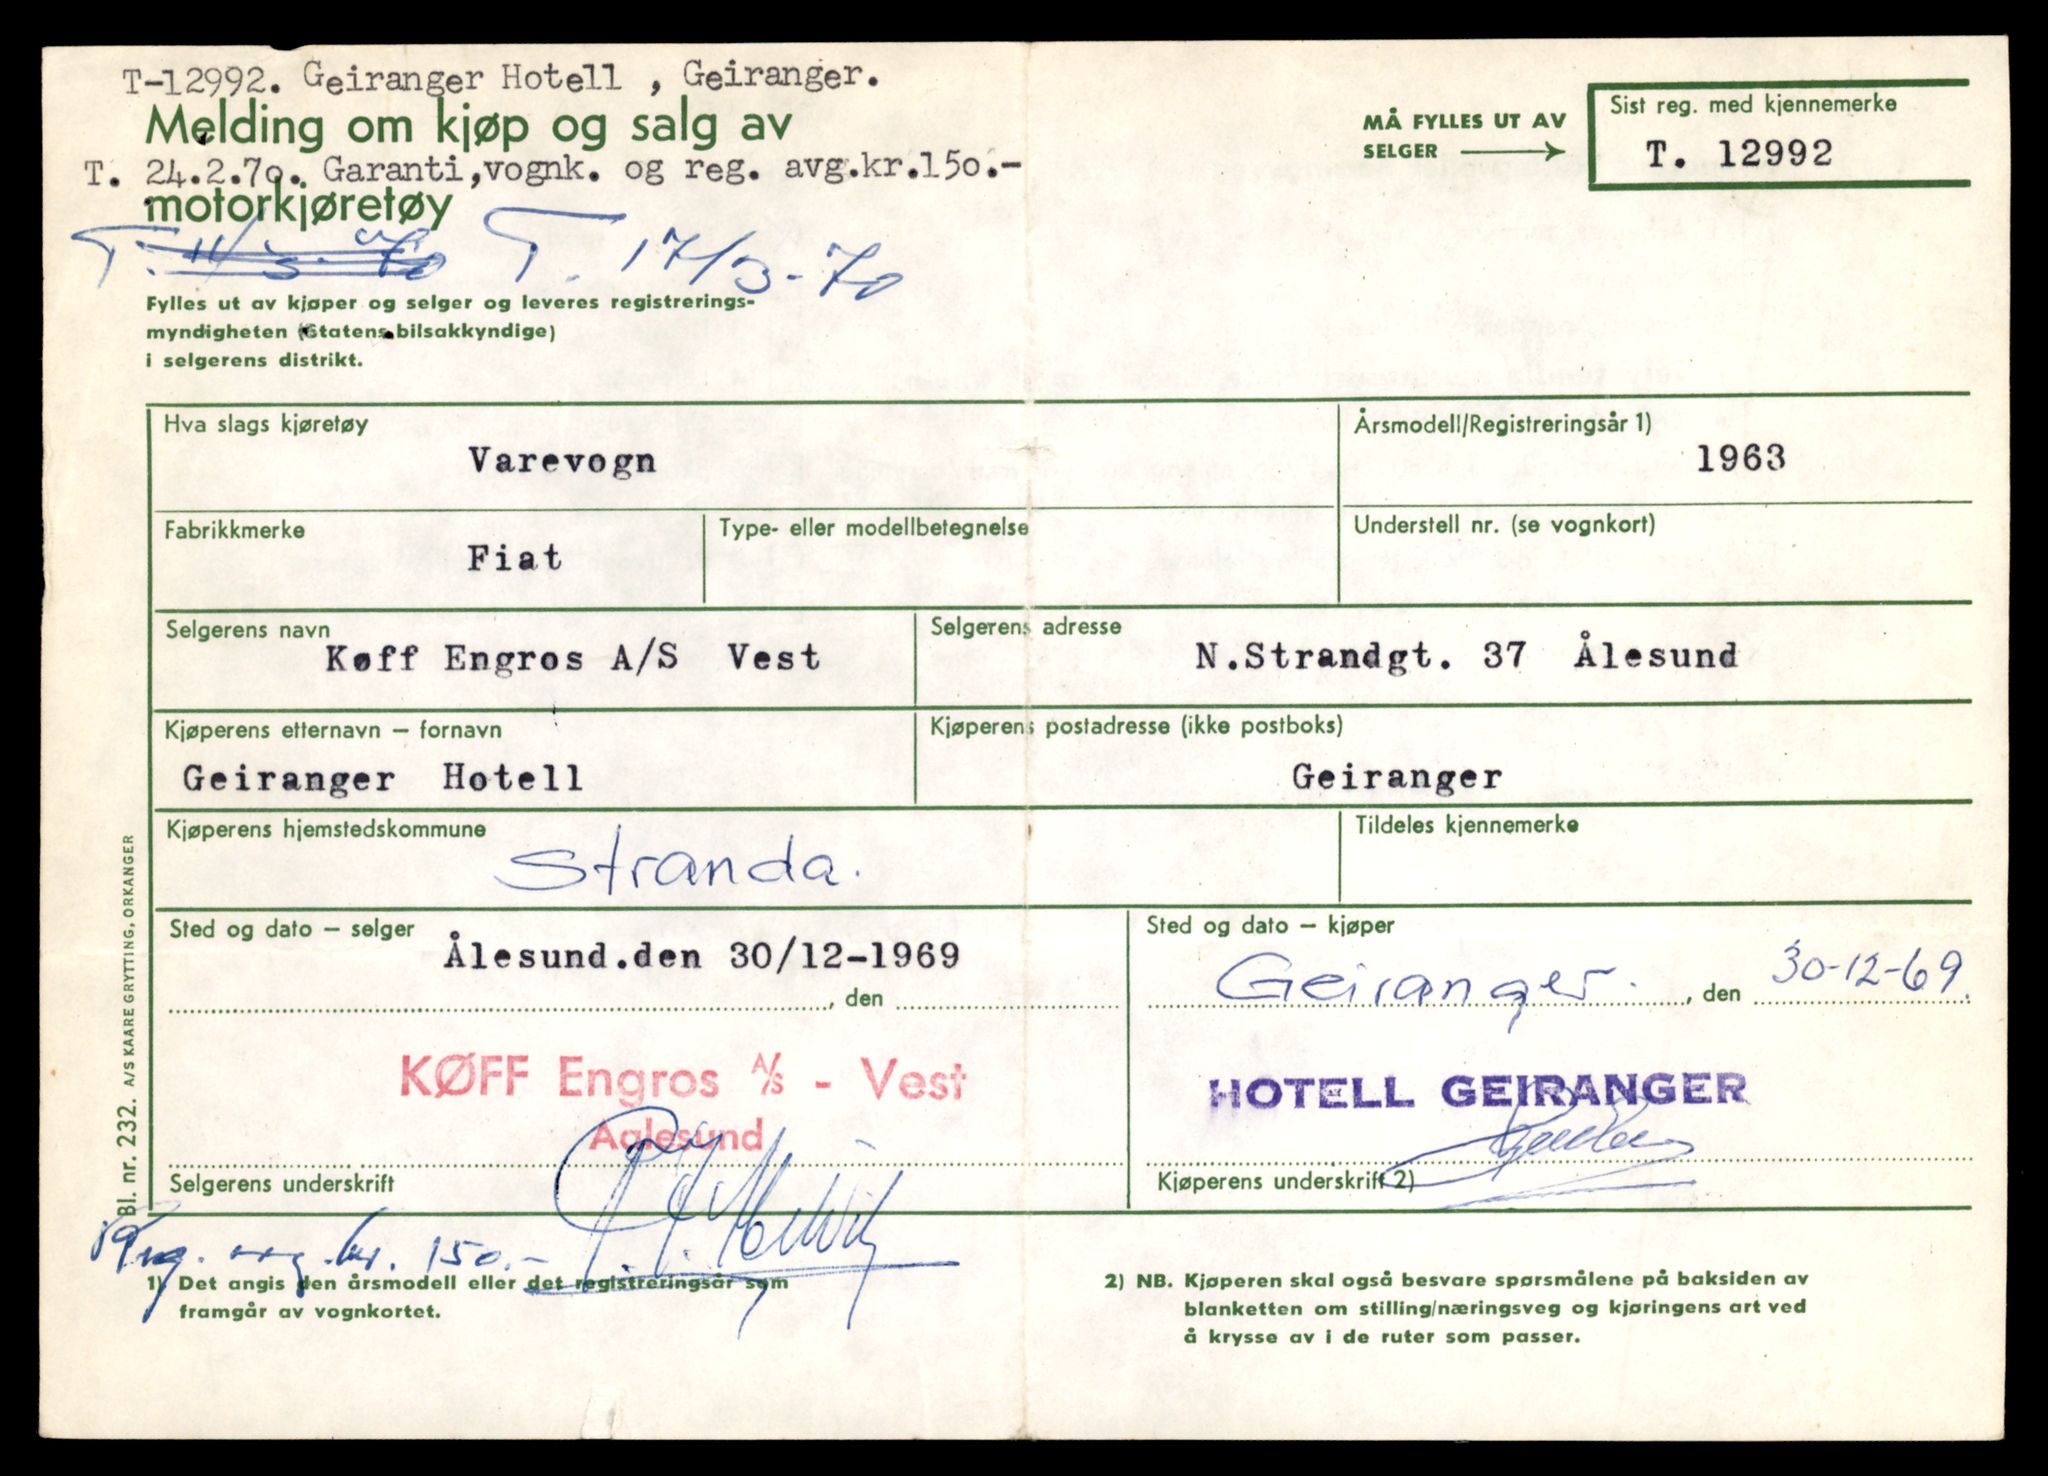 T-12992. Geiranger Hotell , Geiranger.
Melding om kjøp og salg av
T. 24.2.70. Garanti,vognk. og reg. avg.kr.150.-
motorkjøretøy
T. 11/3-70 T. 17/3-70
Fylles ut av kjøper og selger og leveres registrerings-
myndigheten (Statens bilsakkyndige)
i selgerens distrikt.
MÅ FYLLES UT AV
SELGER
Sist reg. med kjennemerke
T. 12992
Hva slags kjøretøy
Varevogn
Årsmodell/Registreringsår 1)
1963
Fabrikkmerke
Fiat
Type- eller modellbetegnelse
Understell nr. (se vognkort)
Selgerens navn
Køff Engros A/S Vest
Selgerens adresse
N.Strandgt. 37 Ålesund
Kjøperens etternavn – fornavn
Geiranger Hotell
Kjøperens postadresse (ikke postboks)
Geiranger
Kjøperens hjemstedskommune
Stranda.
Tildeles kjennemerke
Sted og dato – selger
Ålesund.den 30/12-1969
, den
Sted og dato – kjøper
Geiranger. , den 30-12-69.
KØFF Engros A/S - Vest
Aalesund
Selgerens underskrift
HOTELL GEIRANGER
Kjøperens underskrift 2)
Reg. avg. kr. 150.-
1) Det angis den årsmodell eller det registreringsår som
framgår av vognkortet.
2) NB. Kjøperen skal også besvare spørsmålene på baksiden av
blanketten om stilling/næringsveg og kjøringens art ved
å krysse av i de ruter som passer.
Bl. nr. 232. A/S KAARE GRYTTING, ORKANGER